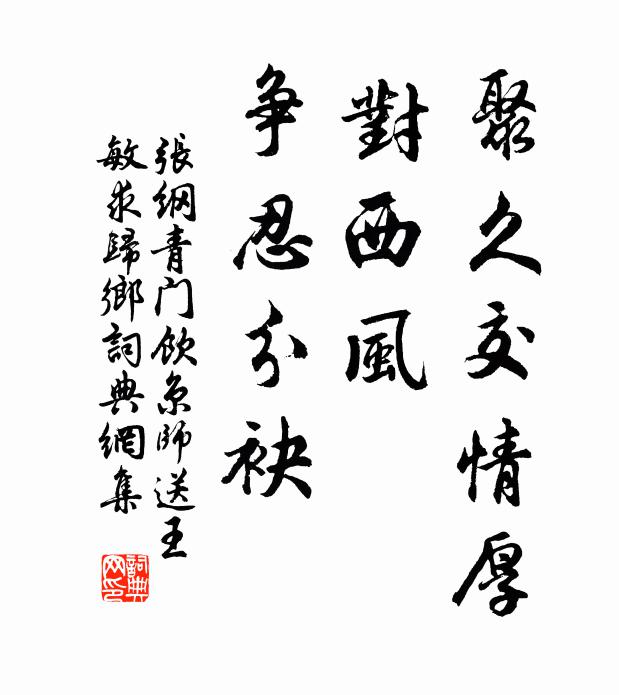 聚久交情厚
對西風
争忍分袂
張綱青门飲京師送王
敏求歸鄉詞典網集
詞典网印